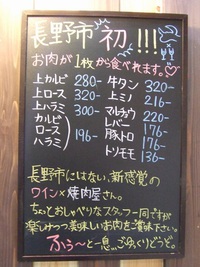 長野市初!!!
お肉が1枚から食べれます。
上カルビ 280-
上ロース 320-
上ハラミ 300-
カルビ
ロース 196-
ハラミ
牛タン 320-
上ミノ 216-
マルチョウ 176-
レバー
豚トロ 176-
トリモモ 136-
長野市にはない、新感覚の
ワイン×焼肉屋さん。
ちょっとおしゃべりなスタッフ一同ですが
楽しみつつ美味しいお肉を満喫して下さい。
ふぅ〜と一息、ごゆっくりどうぞ。